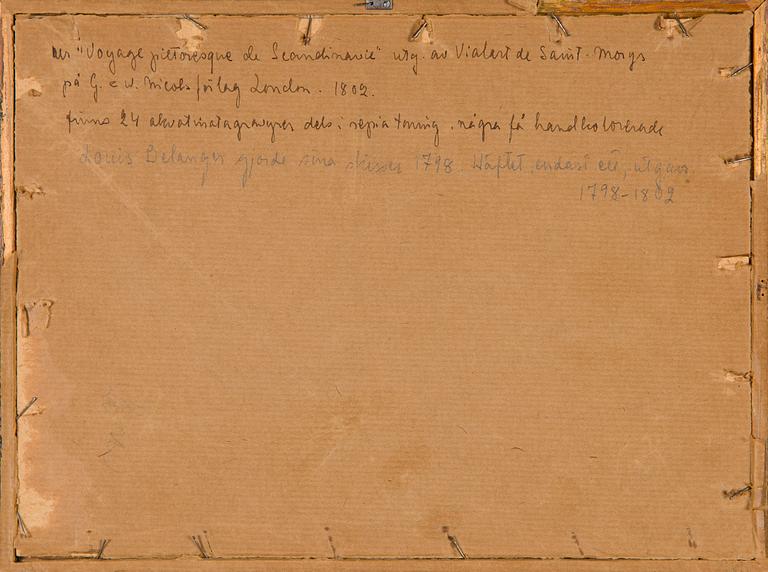 ur "Voyage pittoresque de Scandinavie" utg. av Vialart de Saint-Morys
på G. e W. Nicols förlag London. 1802.
finns 24 akvatintagravyrer dels i sepia toning. några få handkolorerade
Louis Belanger gjorde sina skisser 1798. Häftet, endast ett, utgavs
1798-1802